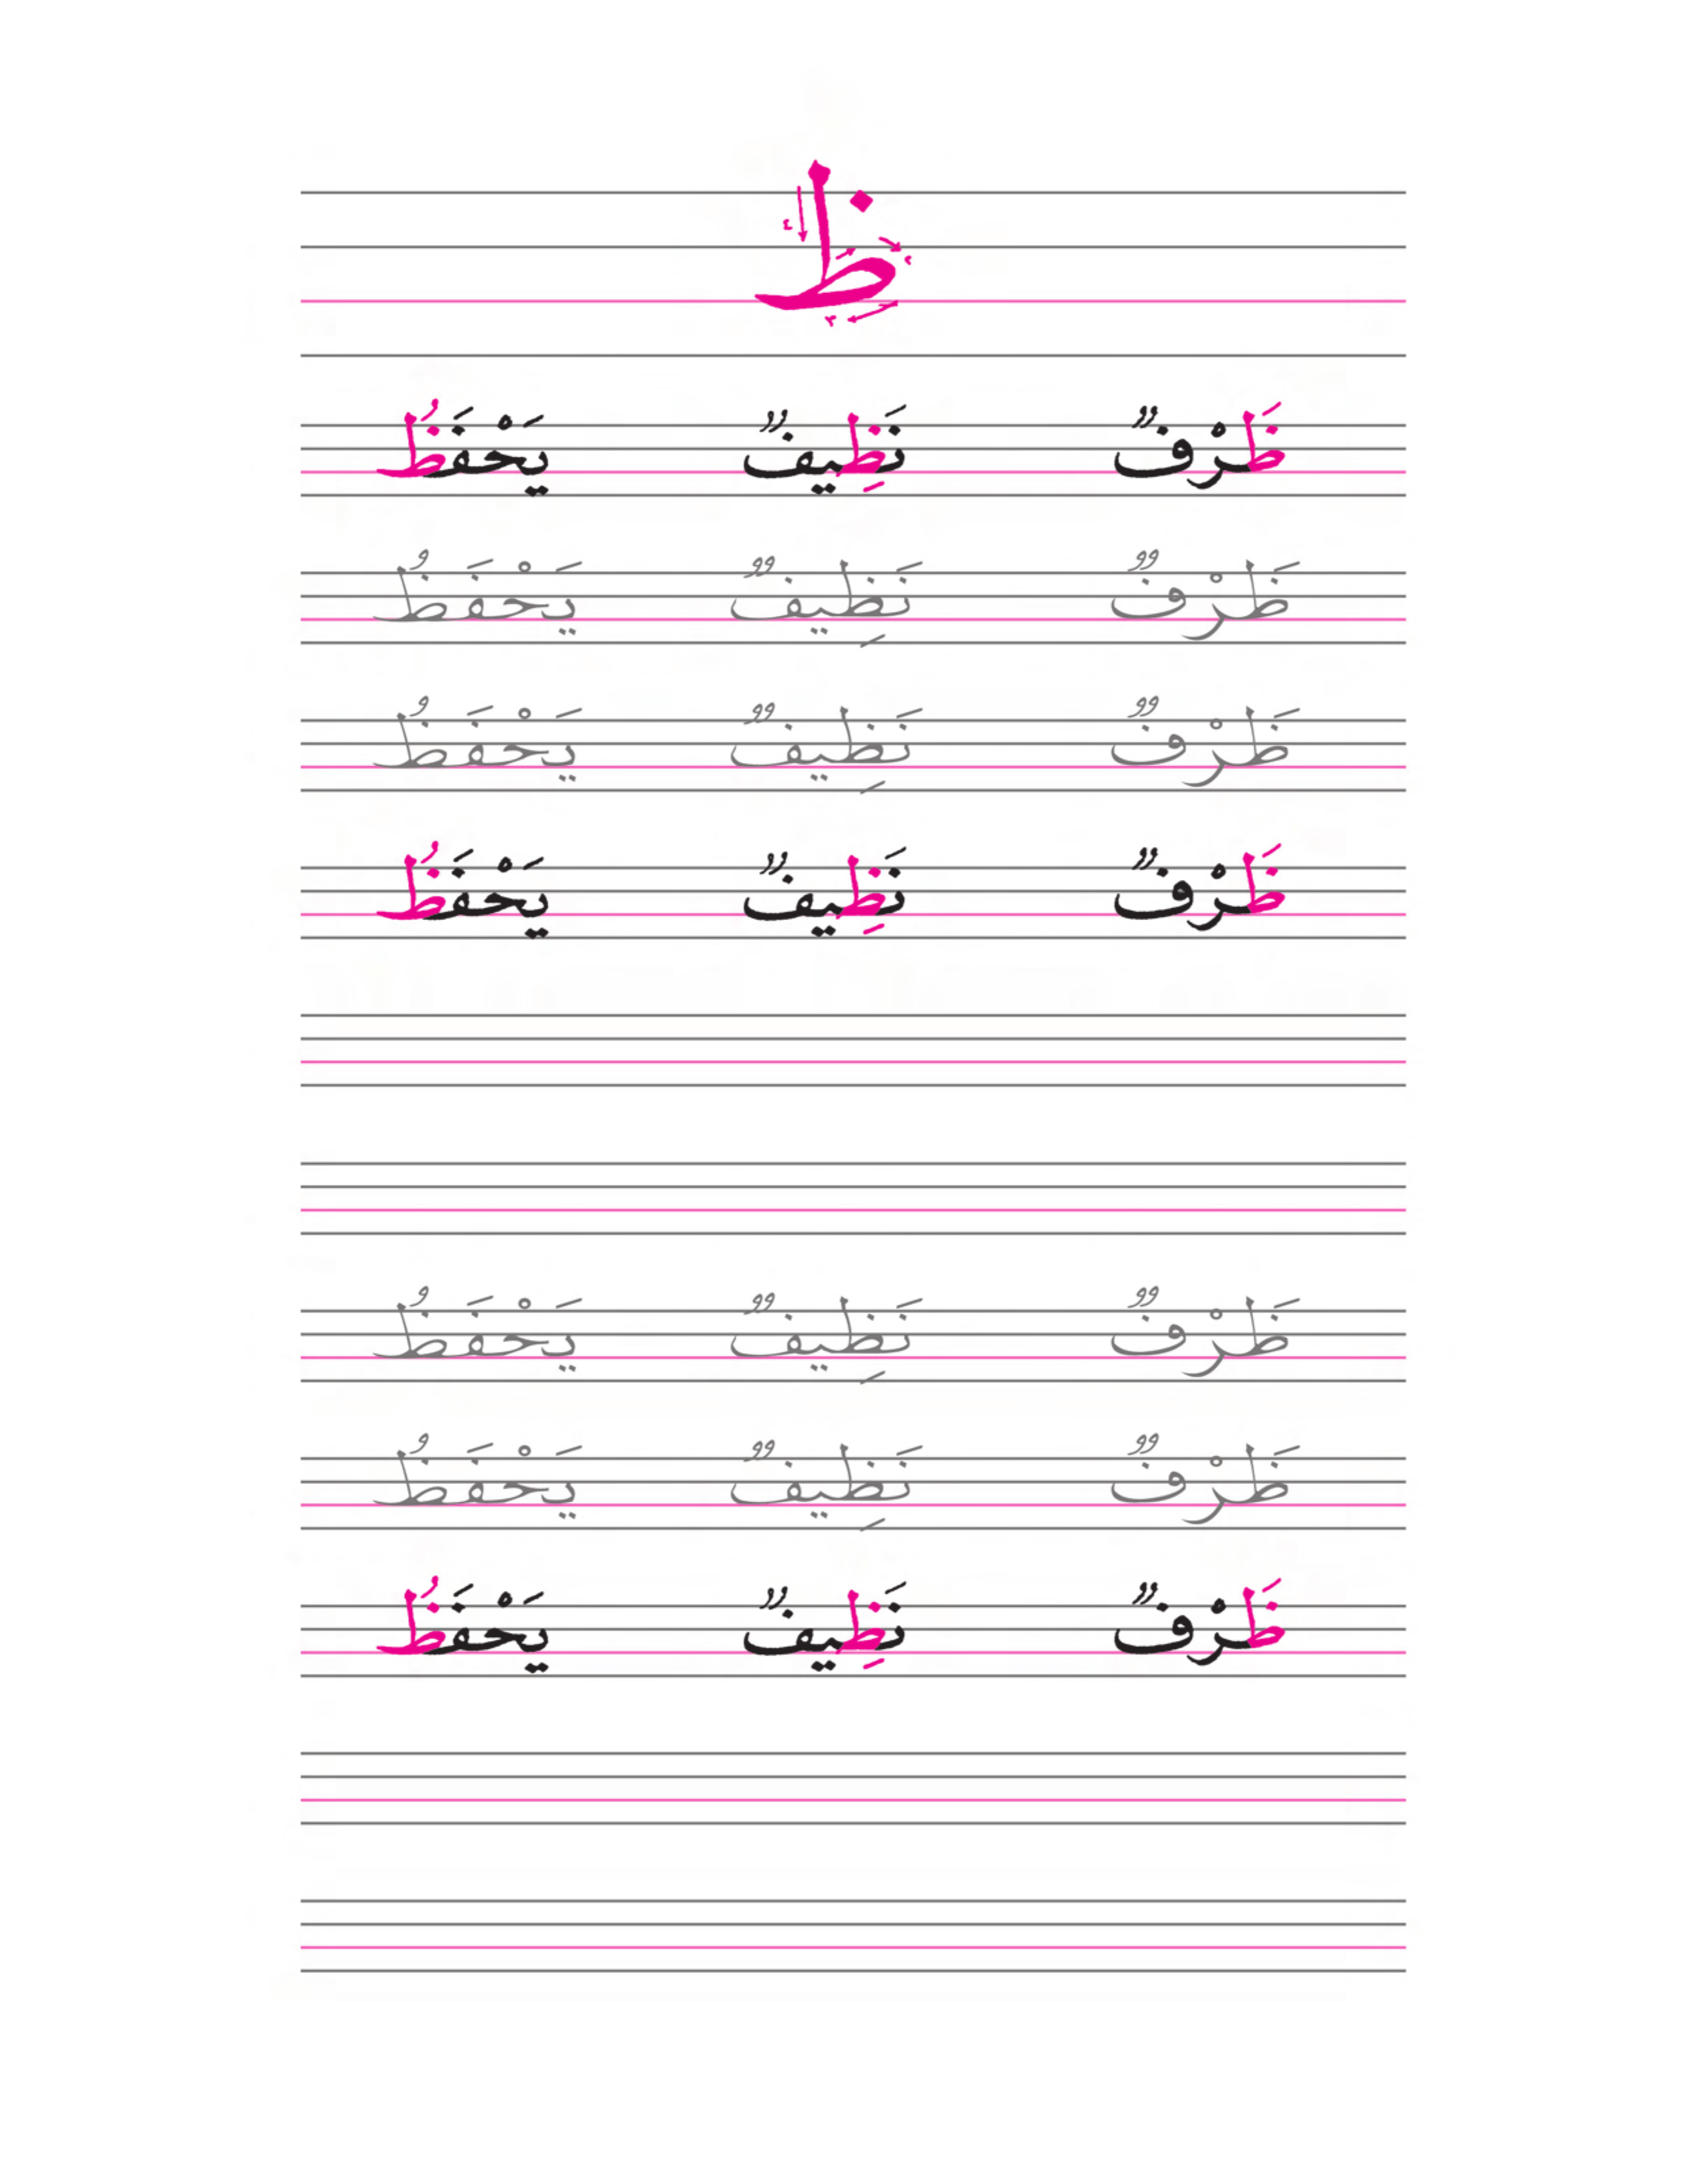 ظ
ظَرْفٌ نَظِيفٌ يَحْفَظُ
ظَرْفٌ نَظِيفٌ يَحْفَظُ
ظَرْفٌ نَظِيفٌ يَحْفَظُ
ظَرْفٌ نَظِيفٌ يَحْفَظُ
ظَرْفٌ نَظِيفٌ يَحْفَظُ
ظَرْفٌ نَظِيفٌ يَحْفَظُ
ظَرْفٌ نَظِيفٌ يَحْفَظُ